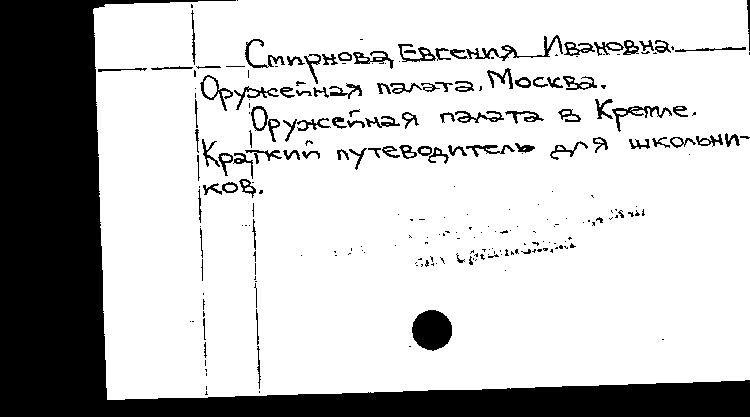 Смирнова, Евгения Ивановна.
Оружейная палата, Москва.
Оружейная палата в Кремле.
Краткий путеводитель для школьни-
ков.